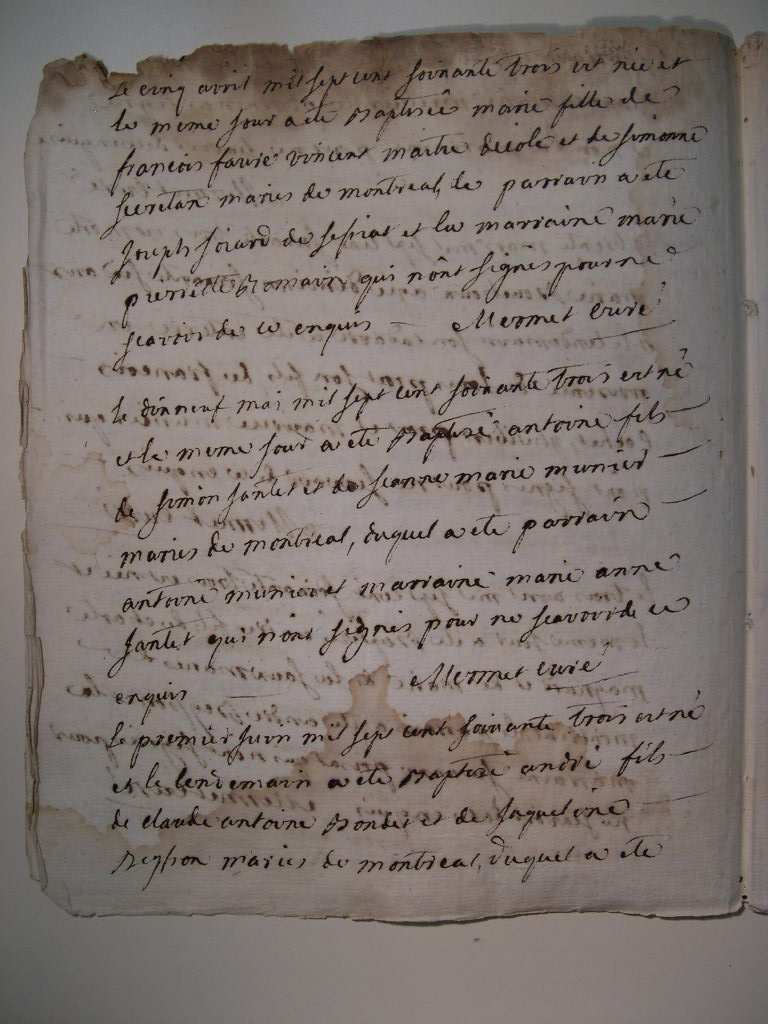 Le cinq avril mil sept cent soixante trois est née et
le meme jour a été Baptisée marie fille de
francois favre vincent maitre decole et de simonne
secretan mariés de montreal, le parrain a été
Joseph soiard de et la marraine marie
pierrette Romain qui n'ont signés pour ne
scavoir de ce enquis — Mermet Curé
le dixneuf mai mil sept cent soixante trois est né
et le meme jour a été Baptisé antoine fils
de simon santet et de jeanne marie munier
mariés de montreal, duquel a été parrain
antoine munier et marraine marie anne
santet qui n'ont signés pour ne scavoir de ce
enquis — Mermet curé
Le premier juin mil sept cent soixante trois est né
et le lendemain a été Baptisé andré fils
de claude antoine Bondet et de jaqueline
mariés de montreal, duquel a été